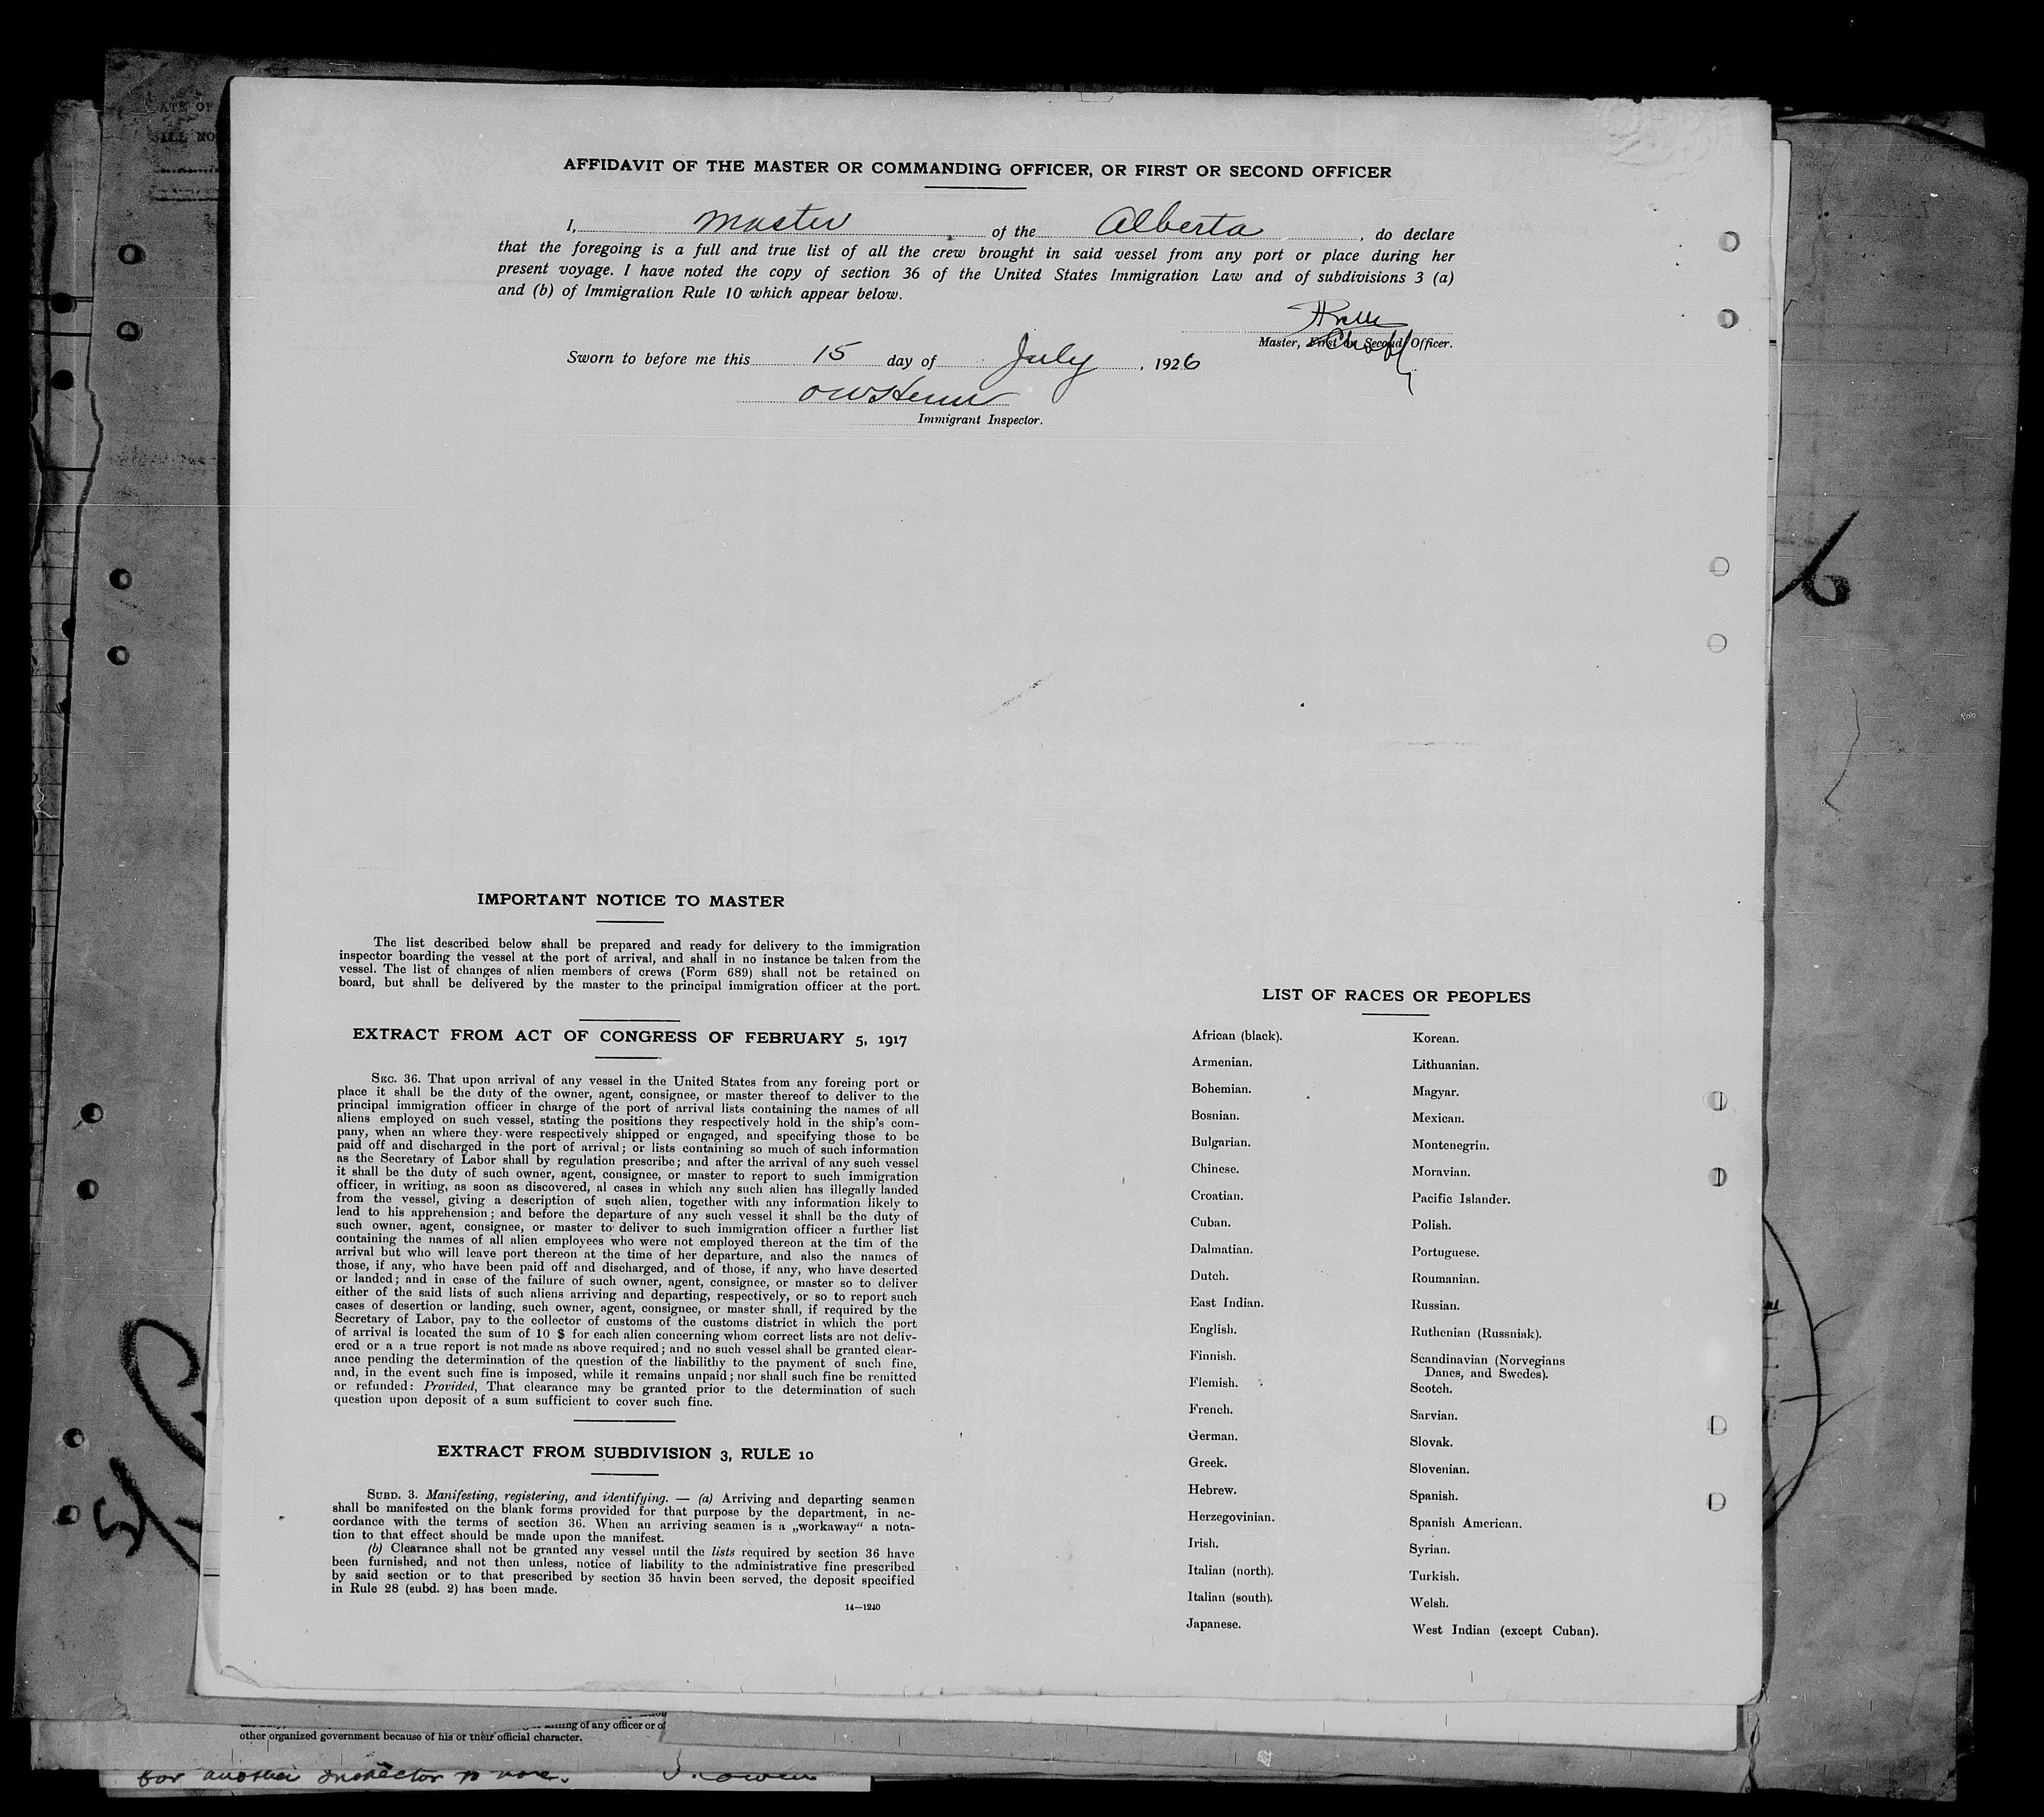 AFFIDAVIT OF THE MASTER OR COMMANDING OFFICER, OR FIRST OR SECOND OFFICER
I, Master of the Alberta, do declare
that the foregoing is a full and true list of all the crew brought in said vessel from any port or place during her
present voyage. I have noted the copy of section 36 of the United States Immigration Law and of subdivisions 3 (a)
and (b) of Immigration Rule 10 which appear below.
Master, First or Second Officer.
Sworn to before me this 15 day of July, 1926
Immigrant Inspector.
IMPORTANT NOTICE TO MASTER
The list described below shall be prepared and ready for delivery to the immigration
inspector boarding the vessel at the port of arrival, and shall in no instance be taken from the
vessel. The list of changes of alien members of crews (Form 689) shall not be retained on
board, but shall be delivered by the master to the principal immigration officer at the port.
EXTRACT FROM ACT OF CONGRESS OF FEBRUARY 5, 1917
SEC. 36. That upon arrival of any vessel in the United States from any foreing port or
place it shall be the duty of the owner, agent, consignee, or master thereof to deliver to the
principal immigration officer in charge of the port of arrival lists containing the names of all
aliens employed on such vessel, stating the positions they respectively hold in the ship's com-
pany, when an where they were respectively shipped or engaged, and specifying those to be
paid off and discharged in the port of arrival; or lists containing so much of such information
as the Secretary of Labor shall by regulation prescribe; and after the arrival of any such vessel
it shall be the duty of such owner, agent, consignee, or master to report to such immigration
officer, in writing, as soon as discovered, al cases in which any such alien has illegally landed
from the vessel, giving a description of such alien, together with any information likely to
lead to his apprehension; and before the departure of any such vessel it shall be the duty of
such owner, agent, consignee, or master to deliver to such immigration officer a further list
containing the names of all alien employees who were not employed thereon at the tim of the
arrival but who will leave port thereon at the time of her departure, and also the names of
those, if any, who have been paid off and discharged, and of those, if any, who have deserted
or landed; and in case of the failure of such owner, agent, consignee, or master so to deliver
either of the said lists of such aliens arriving and departing, respectively, or so to report such
cases of desertion or landing, such owner, agent, consignee, or master shall, if required by the
Secretary of Labor, pay to the collector of customs of the customs district in which the port
of arrival is located the sum of 10 $ for each alien concerning whom correct lists are not deliv-
ered or a a true report is not made as above required; and no such vessel shall be granted clear-
ance pending the determination of the question of the liabilithy to the payment of such fine,
and, in the event such fine is imposed, while it remains unpaid; nor shall such fine be remitted
or refunded: Provided, That clearance may be granted prior to the determination of such
question upon deposit of a sum sufficient to cover such fine.
EXTRACT FROM SUBDIVISION 3, RULE 10
SUBD. 3. Manifesting, registering, and identifying. — (a) Arriving and departing seamen
shall be manifested on the blank forms provided for that purpose by the department, in ac-
cordance with the terms of section 36. When an arriving seamen is a „workaway“ a nota-
tion to that effect should be made upon the manifest.
(b) Clearance shall not be granted any vessel until the lists required by section 36 have
been furnished, and not then unless, notice of liability to the administrative fine prescribed
by said section or to that prescribed by section 35 havin been served, the deposit specified
in Rule 28 (subd. 2) has been made.
14—1240
LIST OF RACES OR PEOPLES
African (black).
Armenian.
Bohemian.
Bosnian.
Bulgarian.
Chinese.
Croatian.
Cuban.
Dalmatian.
Dutch.
East Indian.
English.
Finnish.
Flemish.
French.
German.
Greek.
Hebrew.
Herzegovinian.
Irish.
Italian (north).
Italian (south).
Japanese.
Korean.
Lithuanian.
Magyar.
Mexican.
Montenegrin.
Moravian.
Pacific Islander.
Polish.
Portuguese.
Roumanian.
Russian.
Ruthenian (Russniak).
Scandinavian (Norvegians
Danes, and Swedes).
Scotch.
Sarvian.
Slovak.
Slovenian.
Spanish.
Spanish American.
Syrian.
Turkish.
Welsh.
West Indian (except Cuban).
of any officer or of
other organized government because of his or their official character.
for another inspector